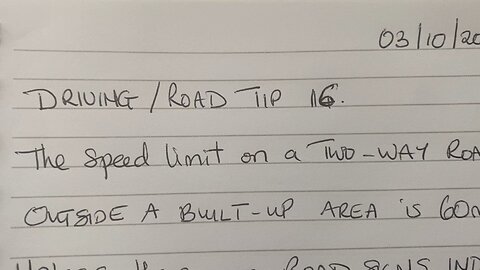 03/10/20
DRIVING / ROAD TIP 16.
The Speed limit on a TWO-WAY ROA
OUTSIDE A BUILT-UP AREA is 60m
ROAD SIGNS IND